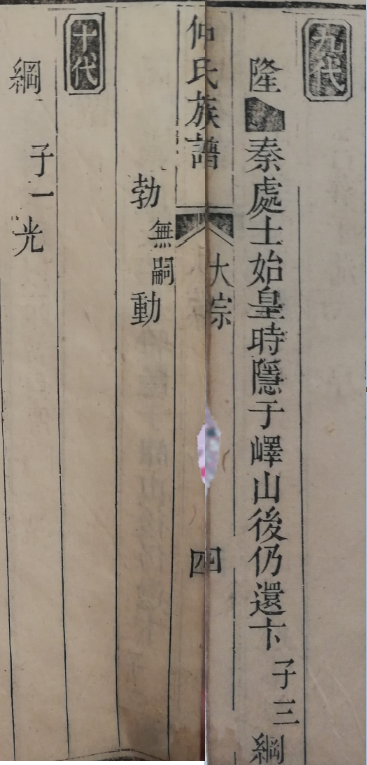 九代
隆 秦處士始皇時隱于嶧山後仍還卞 子三 綱
仲氏族譜 大宗 四
勃 無嗣 動
十代
綱 子一 光